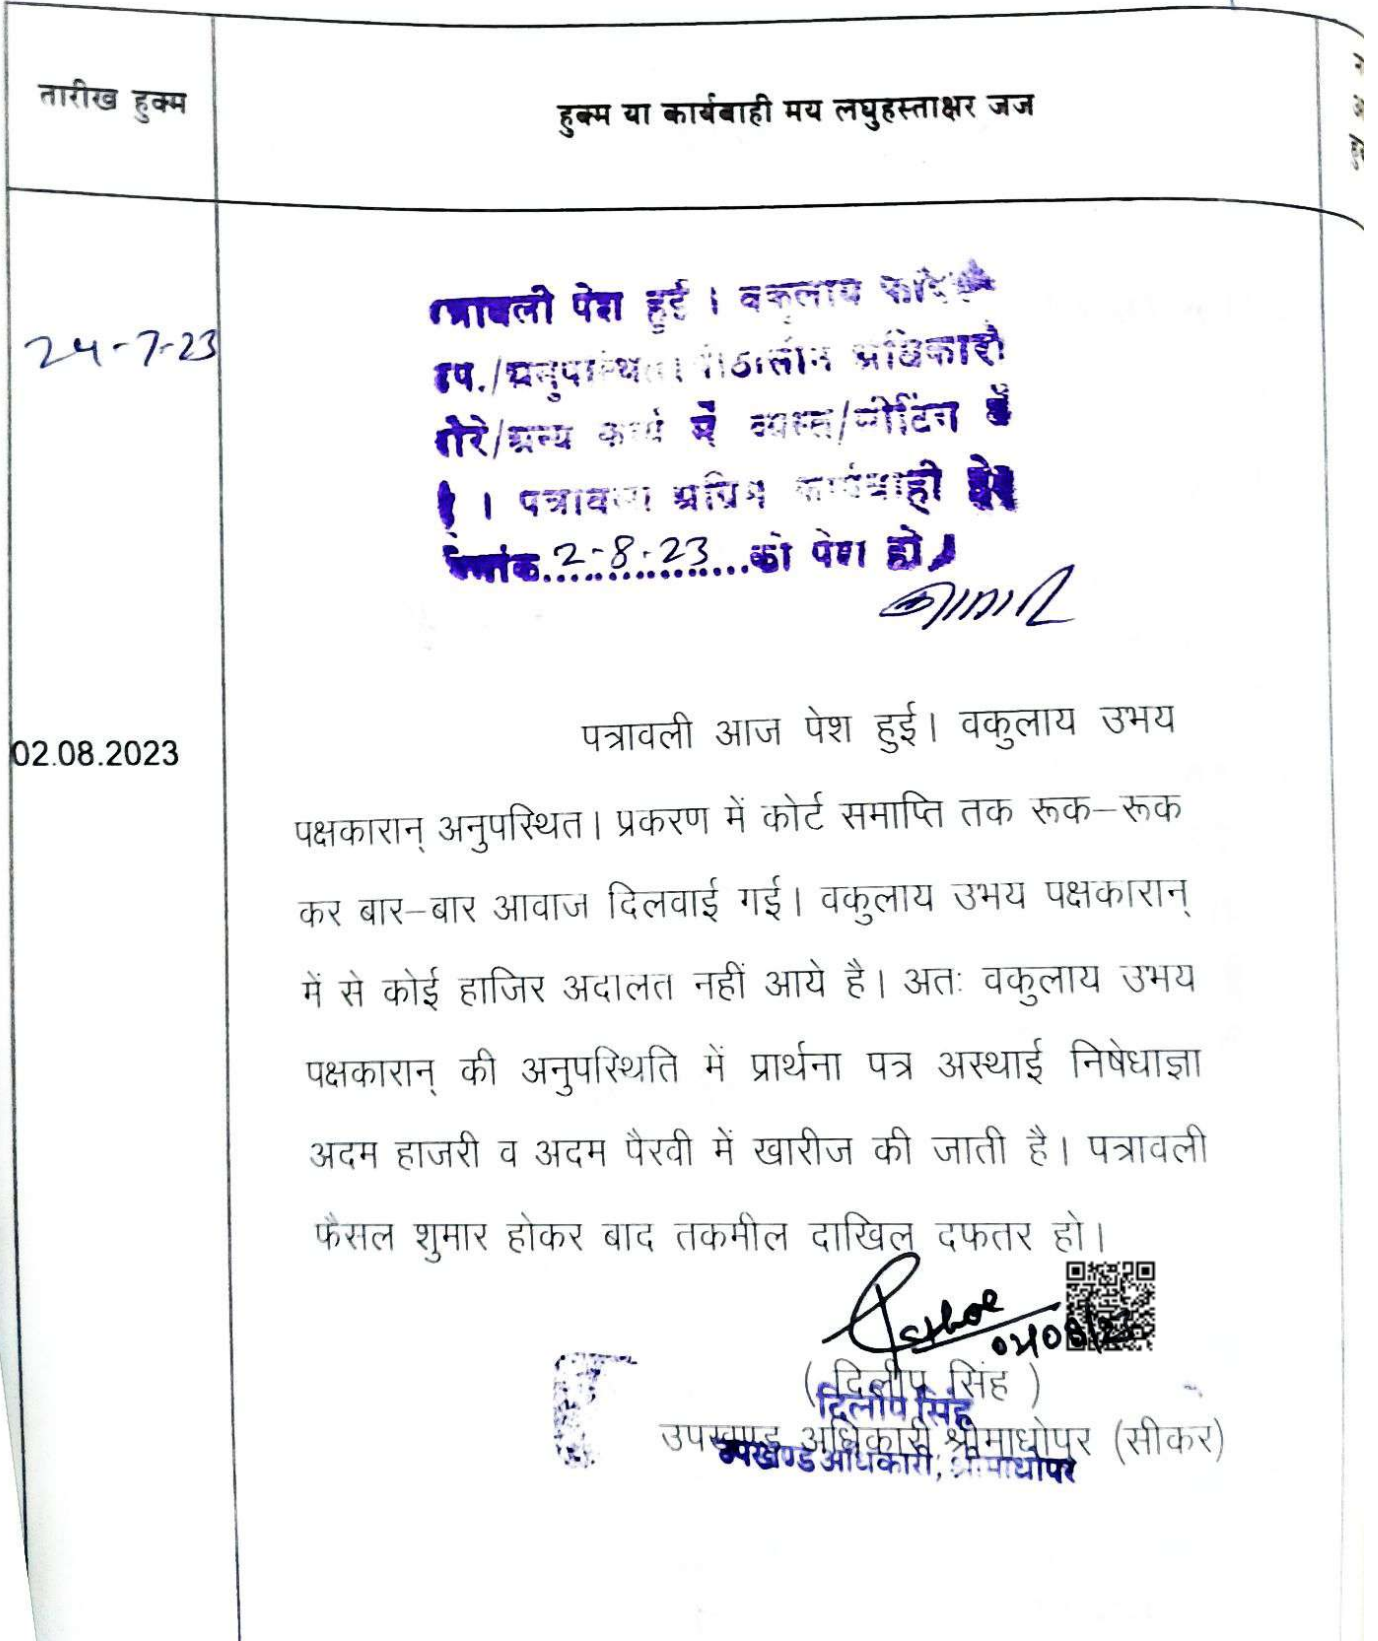 तारीख हुक्म
हुक्म या कार्यवाही मय लघुहस्ताक्षर जज
24-7-23
पत्रावली पेश हुई । वकलाय
उप./अनुपस्थित। पीठासीन अधिकारी
दौरे/अन्य कार्य में व्यस्त/मीटिंग में
। पत्रावली अग्रिम कार्यवाही हेतु
दिनांक 2-8-23 को पेश हो।
02.08.2023
पत्रावली आज पेश हुई। वकुलाय उभय
पक्षकारान् अनुपस्थित। प्रकरण में कोर्ट समाप्ति तक रूक–रूक
कर बार–बार आवाज दिलवाई गई। वकुलाय उभय पक्षकारान्
में से कोई हाजिर अदालत नहीं आये है। अतः वकुलाय उभय
पक्षकारान् की अनुपस्थिति में प्रार्थना पत्र अस्थाई निषेधाज्ञा
अदम हाजरी व अदम पैरवी में खारीज की जाती है। पत्रावली
फैसल शुमार होकर बाद तकमील दाखिल दफतर हो।
( दिलीप सिंह )
दिलीप सिंह
उपखण्ड अधिकारी श्रीमाधोपुर (सीकर)
उपखण्ड अधिकारी, श्रीमाधोपुर